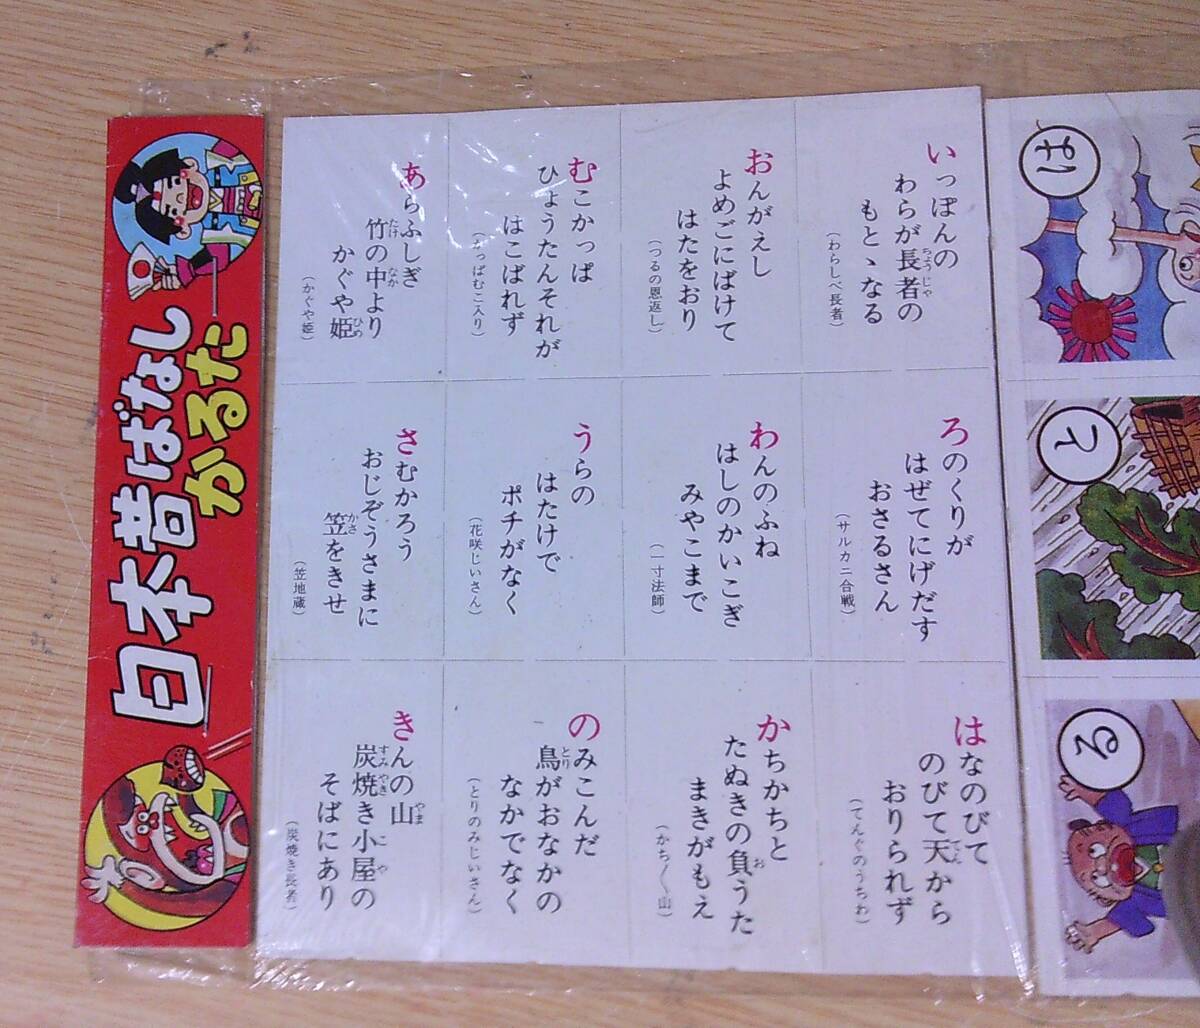 日本昔ばなし
かるた
いっぽんの
わらが長者の
もとゝなる
（わらしべ長者）
おんがえし
よめごにばけて
はたをおり
（つるの恩返し）
むこかっぱ
ひょうたんそれが
はこばれず
（かっぱむこ入り）
あらふしぎ
竹の中より
かぐや姫
（かぐや姫）
ろのくりが
はぜてにげだす
おさるさん
（サルカニ合戦）
わんのふね
はしのかいこぎ
みやこまで
（一寸法師）
うらの
はたけで
ポチがなく
（花咲じいさん）
さむかろう
おじぞうさまに
笠をきせ
（笠地蔵）
はなのびて
のびて天から
おりられず
（てんぐのうちわ）
かちかちと
たぬきの負うた
まきがもえ
（かち〱山）
のみこんだ
鳥がおなかの
なかでなく
（とりのみじいさん）
きんの山
炭焼き小屋の
そばにあり
（炭焼き長者）
は
て
る